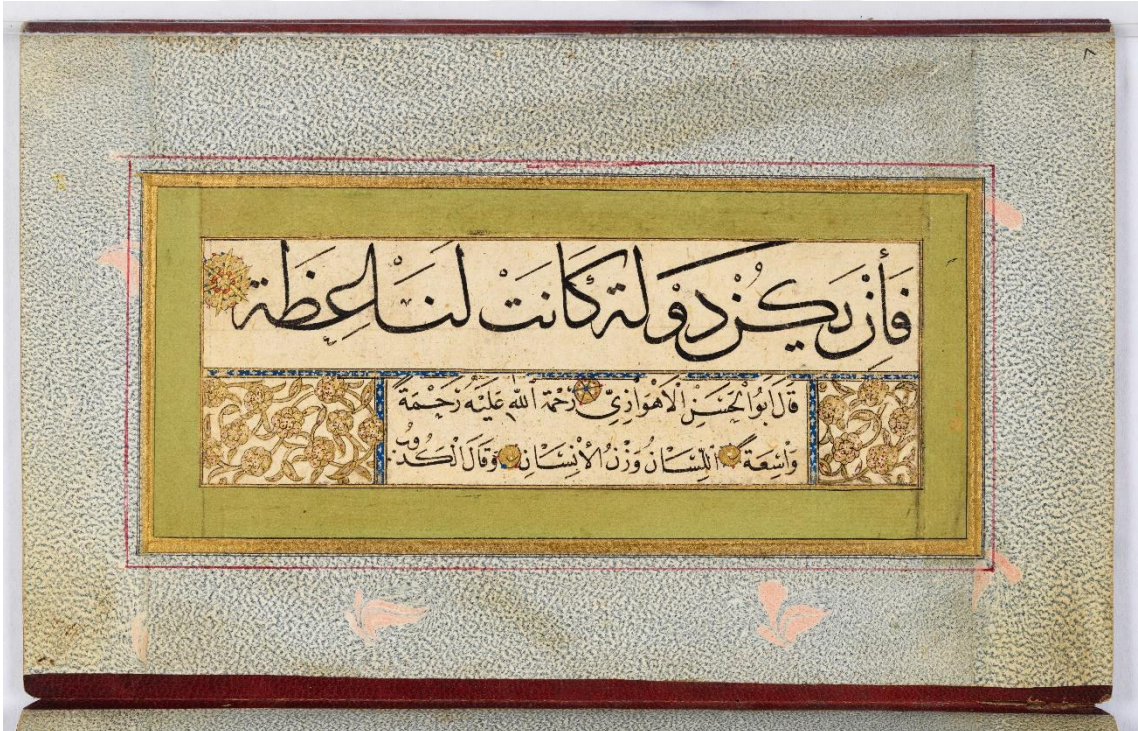 ٨
فَأِنْ يَكُنْ دَوْلَة كَانَتْ لَنَا عِظَة
قَالَ ابُو الْحَسَنِ الْاَهْوَازِيّ رَحْمَة اللّٰهِ عَلَيْهِ رَحْمَةً
وَاسِعَةً اَللِّسَانُ وَزْنُ الْأِنْسَانِ وَقَالَ الْكَذُوبُ